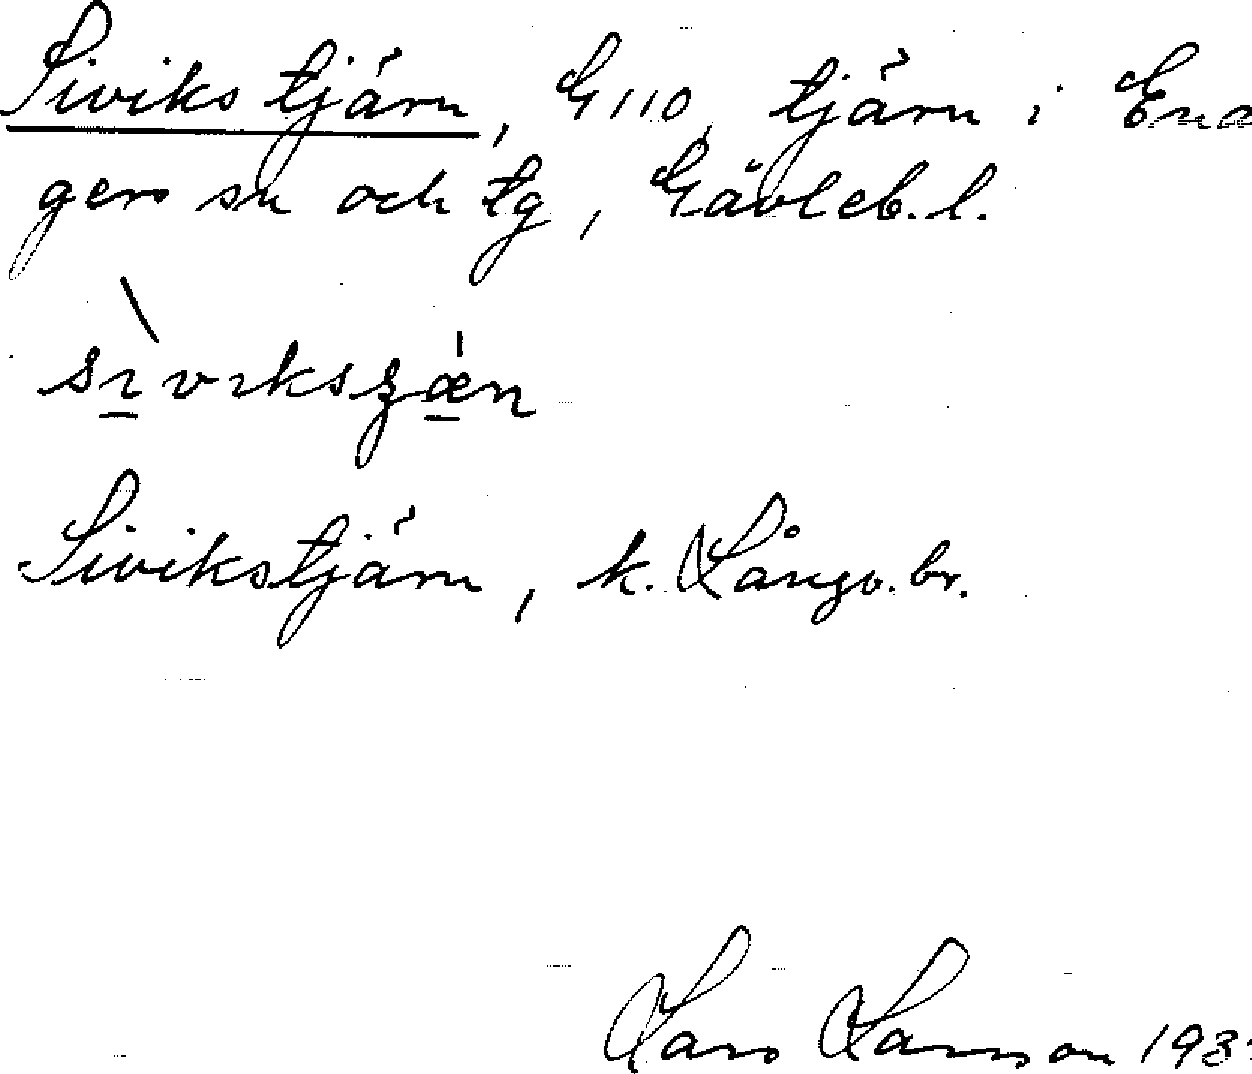 Sivikstjärn, G110, tjärn i Ena
gers sn och tg, Gävleb. l.
sìvikszǽn
Sivikstjärn, k. Långv. br.
Lars Larsson 193